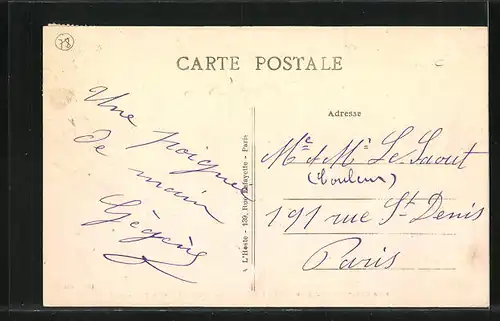 78
CARTE POSTALE
Une poignée
de main
Adresse
Mr & Me Le Saout
(Couleur)
191 rue St Denis
Paris
L'Hoste - 139, Rue Lafayette - Paris